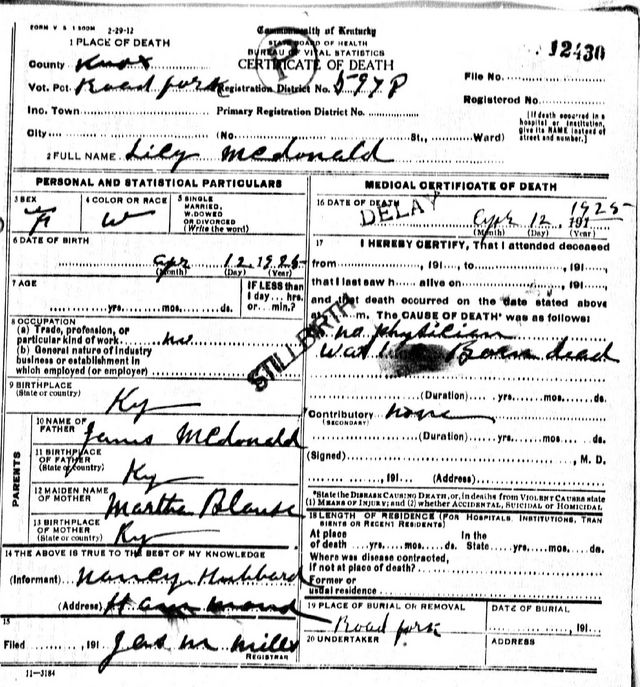 FORM V. S. 1 500M 2-29-12
Commonwealth of Kentucky
STATE BOARD OF HEALTH
BUREAU OF VITAL STATISTICS
CERTIFICATE OF DEATH
12430
1 PLACE OF DEATH
County Knox
Vot. Pct. Road fork Registration District No. 597P
File No.
Registered No.
Inc. Town Primary Registration District No.
[If death occurred in a
hospital or institution,
give its NAME instead of
street and number.]
City (No. St., Ward)
2 FULL NAME Lily McDonald
PERSONAL AND STATISTICAL PARTICULARS
3 SEX
F
4 COLOR OR RACE
W
5 SINGLE
MARRIED,
WIDOWED
OR DIVORCED
(Write the word)
6 DATE OF BIRTH
Apr 12 1925
(Month) (Day) (Year)
7 AGE
yrs. mos. ds.
IF LESS than
1 day... hrs.
or... min.?
8 OCCUPATION
(a) Trade, profession, or
particular kind of work
(b) General nature of industry
business or establishment in
which employed (or employer)
STILLBIRTH
9 BIRTHPLACE
(State or country) Ky
PARENTS
10 NAME OF
FATHER James McDonald
11 BIRTHPLACE
OF FATHER
(State or country) Ky
12 MAIDEN NAME
OF MOTHER Martha
13 BIRTHPLACE
OF MOTHER
(State or country) Ky
14 THE ABOVE IS TRUE TO THE BEST OF MY KNOWLEDGE
(Informant) Nancy Hubbard
(Address) Hammond
15
Filed , 191 Jas M Mills
REGISTRAR
11-3184
MEDICAL CERTIFICATE OF DEATH
16 DATE OF DEATH
DELAY
Apr 12 191 1925
(Month) (Day) (Year)
17 I HEREBY CERTIFY, That I attended deceased
from , 191 , to , 191 ,
that I last saw h alive on , 191 ,
and that death occurred on the date stated above
m. The CAUSE OF DEATH* was as follows:
no physician
was Born dead
(Duration) yrs. mos. ds.
Contributory none
(SECONDARY)
(Duration) yrs. mos. ds.
(Signed) , M. D.
, 191 (Address)
*State the DISEASE CAUSING DEATH, or, in deaths from VIOLENT CAUSES state
(1) MEANS OF INJURY; and (2) whether ACCIDENTAL, SUICIDAL or HOMICIDAL
18 LENGTH OF RESIDENCE (FOR HOSPITALS, INSTITUTIONS, TRAN
SIENTS OR RECENT RESIDENTS)
At place In the
of death yrs. mos. ds. State yrs. mos. ds.
Where was disease contracted,
if not at place of death?
Former or
usual residence
19 PLACE OF BURIAL OR REMOVAL
Road fork
DATE OF BURIAL
, 191
20 UNDERTAKER
ADDRESS